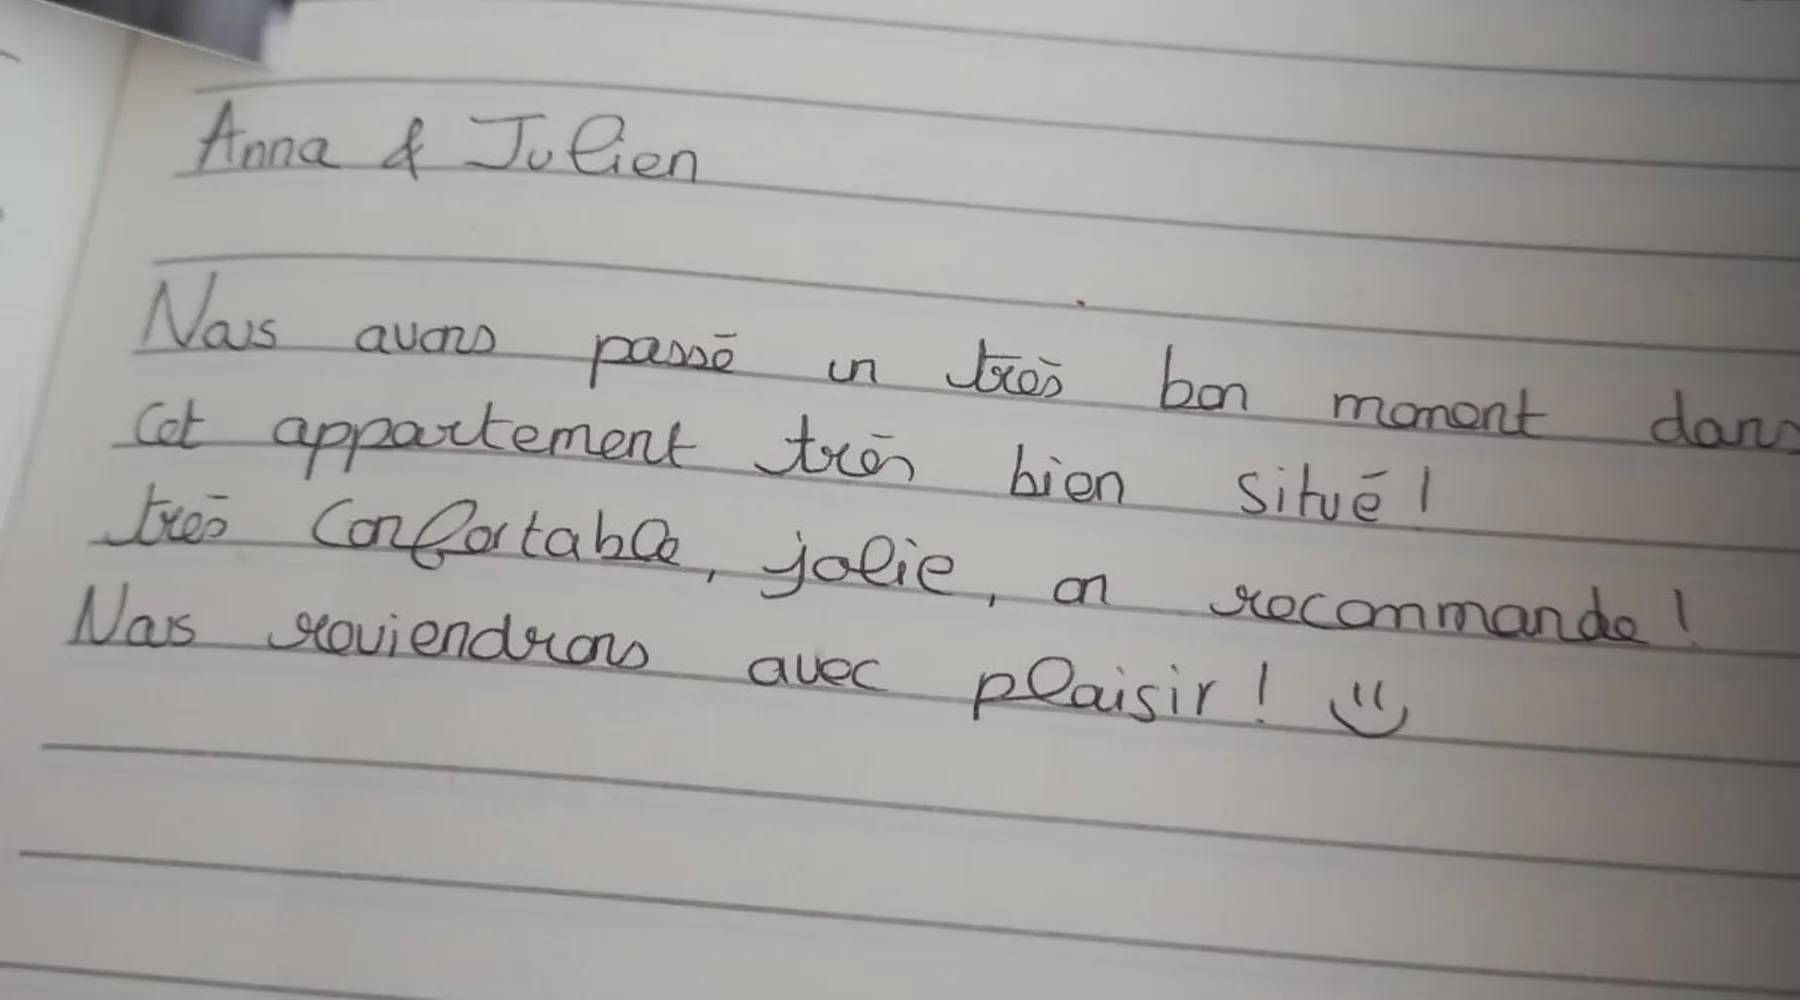 Anna & Julien
Nous avons passé un très bon moment dans
cet appartement très bien situé !
très confortable, jolie, on recommande !
Nous reviendrons avec plaisir ! :)